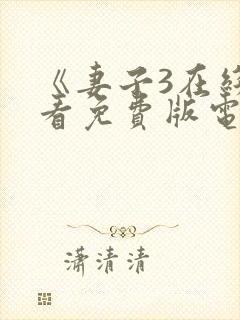 《妻子3在线
看免費版電
潇清清